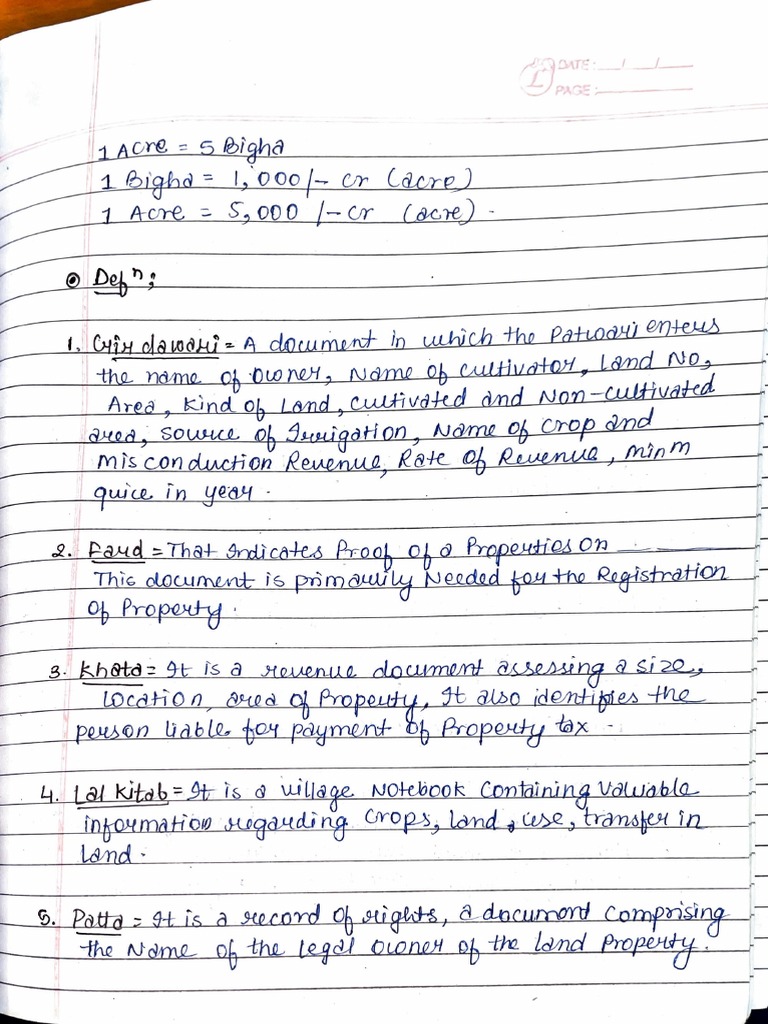 DATE: __/__/__
PAGE: ______
1 Acre = 5 Bigha
1 Bigha = 1,000/- cr (acre)
1 Acre = 5,000 /- cr (acre) -
Defⁿ;
1. Girdawari = A document in which the Patwari enters
the name of owner, Name of cultivator, Land No,
Area, Kind of Land, cultivated and Non-cultivated
area, source of Irrigation, Name of crop and
misconduction Revenue, Rate of Revenue, minm
quice in year.
2. Fard = That Indicates Proof of a Properties On ______
This document is primarily Needed for the Registration
of Property.
3. Khata = It is a revenue document assessing a size,
location, area of Property, It also identifies the
person liable for payment of Property tax -
4. Lal Kitab = It is a village Notebook Containing Valuable
information regarding Crops, land, use, transfer in
land.
5. Patta = It is a record of rights, a document comprising
the Name of the legal owner of the land Property.